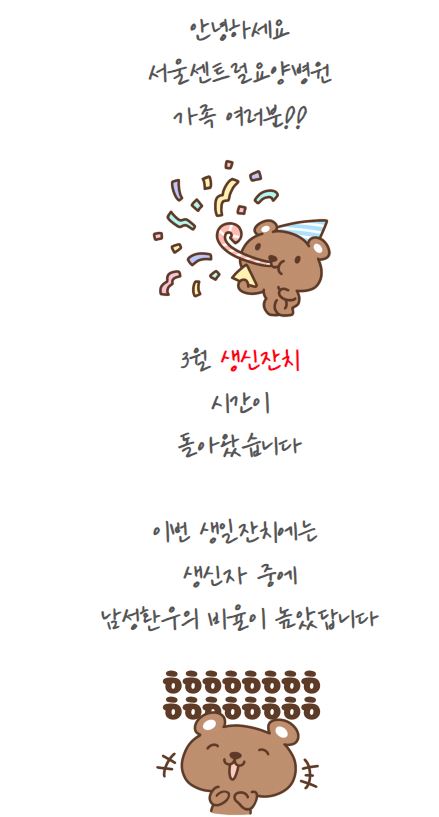 안녕하세요
서울센트럴요양병원
가족 여러분!!
3월 생신잔치
시간이
돌아왔습니다
이번 생일잔치에는
생신자 중에
남성환우의 비율이 높았답니다
ㅎㅎㅎㅎㅎㅎㅎㅎ
ㅎㅎㅎㅎㅎㅎㅎㅎ